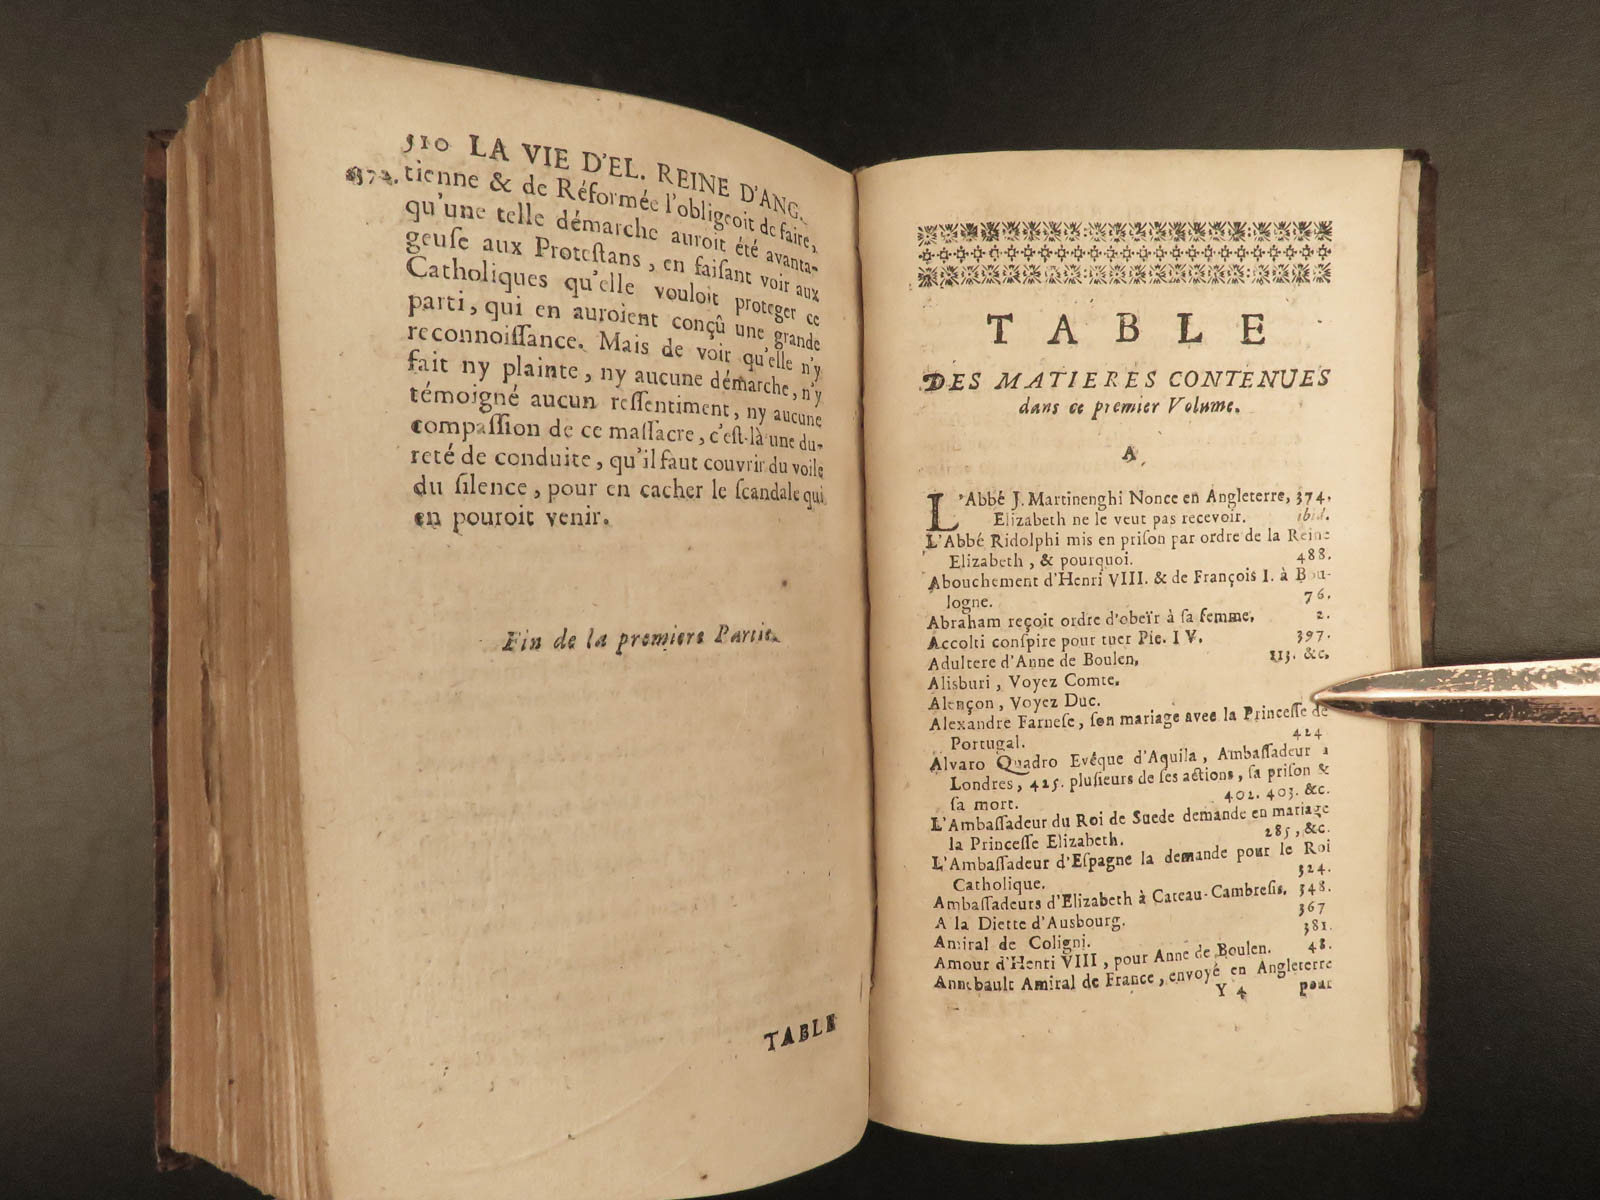 510 LA VIE D'EL. REINE D'ANG.
tienne & de Réformée l'obligeoit de faire,
qu'une telle démarche auroit été avanta-
geuſe aux Proteſtans, en faiſant voir aux
Catholiques qu'elle vouloit proteger ce
parti, qui en auroient conçû une grande
reconnoiſſance. Mais de voir qu'elle n'y
fait ny plainte, ny aucune démarche, n'y
témoigné aucun reſſentiment, ny aucune
compaſſion de ce maſſacre, c'eſt-là une du-
reté de conduite, qu'il faut couvrir du voile
du ſilence, pour en cacher le ſcandale qui
en pouroit venir.
Fin de la premiere Partie.
TABLE
TABLE
DES MATIERES CONTENUES
dans ce premier Volume.
A
L'Abbé J. Martinenghi Nonce en Angleterre, 374.
Elizabeth ne le veut pas recevoir. ibid.
L'Abbé Ridolphi mis en priſon par ordre de la Reine
Elizabeth, & pourquoi. 488.
Abouchement d'Henri VIII. & de François I. à Bou-
logne. 76.
Abraham reçoit ordre d'obeïr à ſa femme, 2.
Accolti conſpire pour tuer Pie. IV. 397.
Adultere d'Anne de Boulen, 113. &c.
Alisburi, Voyez Comte.
Alençon, Voyez Duc.
Alexandre Farneſe, ſon mariage avec la Princeſſe de
Portugal. 424
Alvaro Quadro Evéque d'Aquila, Ambaſſadeur à
Londres, 425. pluſieurs de ſes actions, ſa priſon &
ſa mort. 402. 403. &c.
L'Ambaſſadeur du Roi de Suede demande en mariage
la Princeſſe Elizabeth. 285, &c.
L'Ambaſſadeur d'Eſpagne la demande pour le Roi
Catholique. 324.
Ambaſſadeurs d'Elizabeth à Cateau-Cambreſis, 348.
A la Diette d'Ausbourg. 367
Amiral de Coligni. 381.
Amour d'Henri VIII, pour Anne de Boulen. 48.
Annebault Amiral de France, envoyé en Angleterre
Y 4 pour